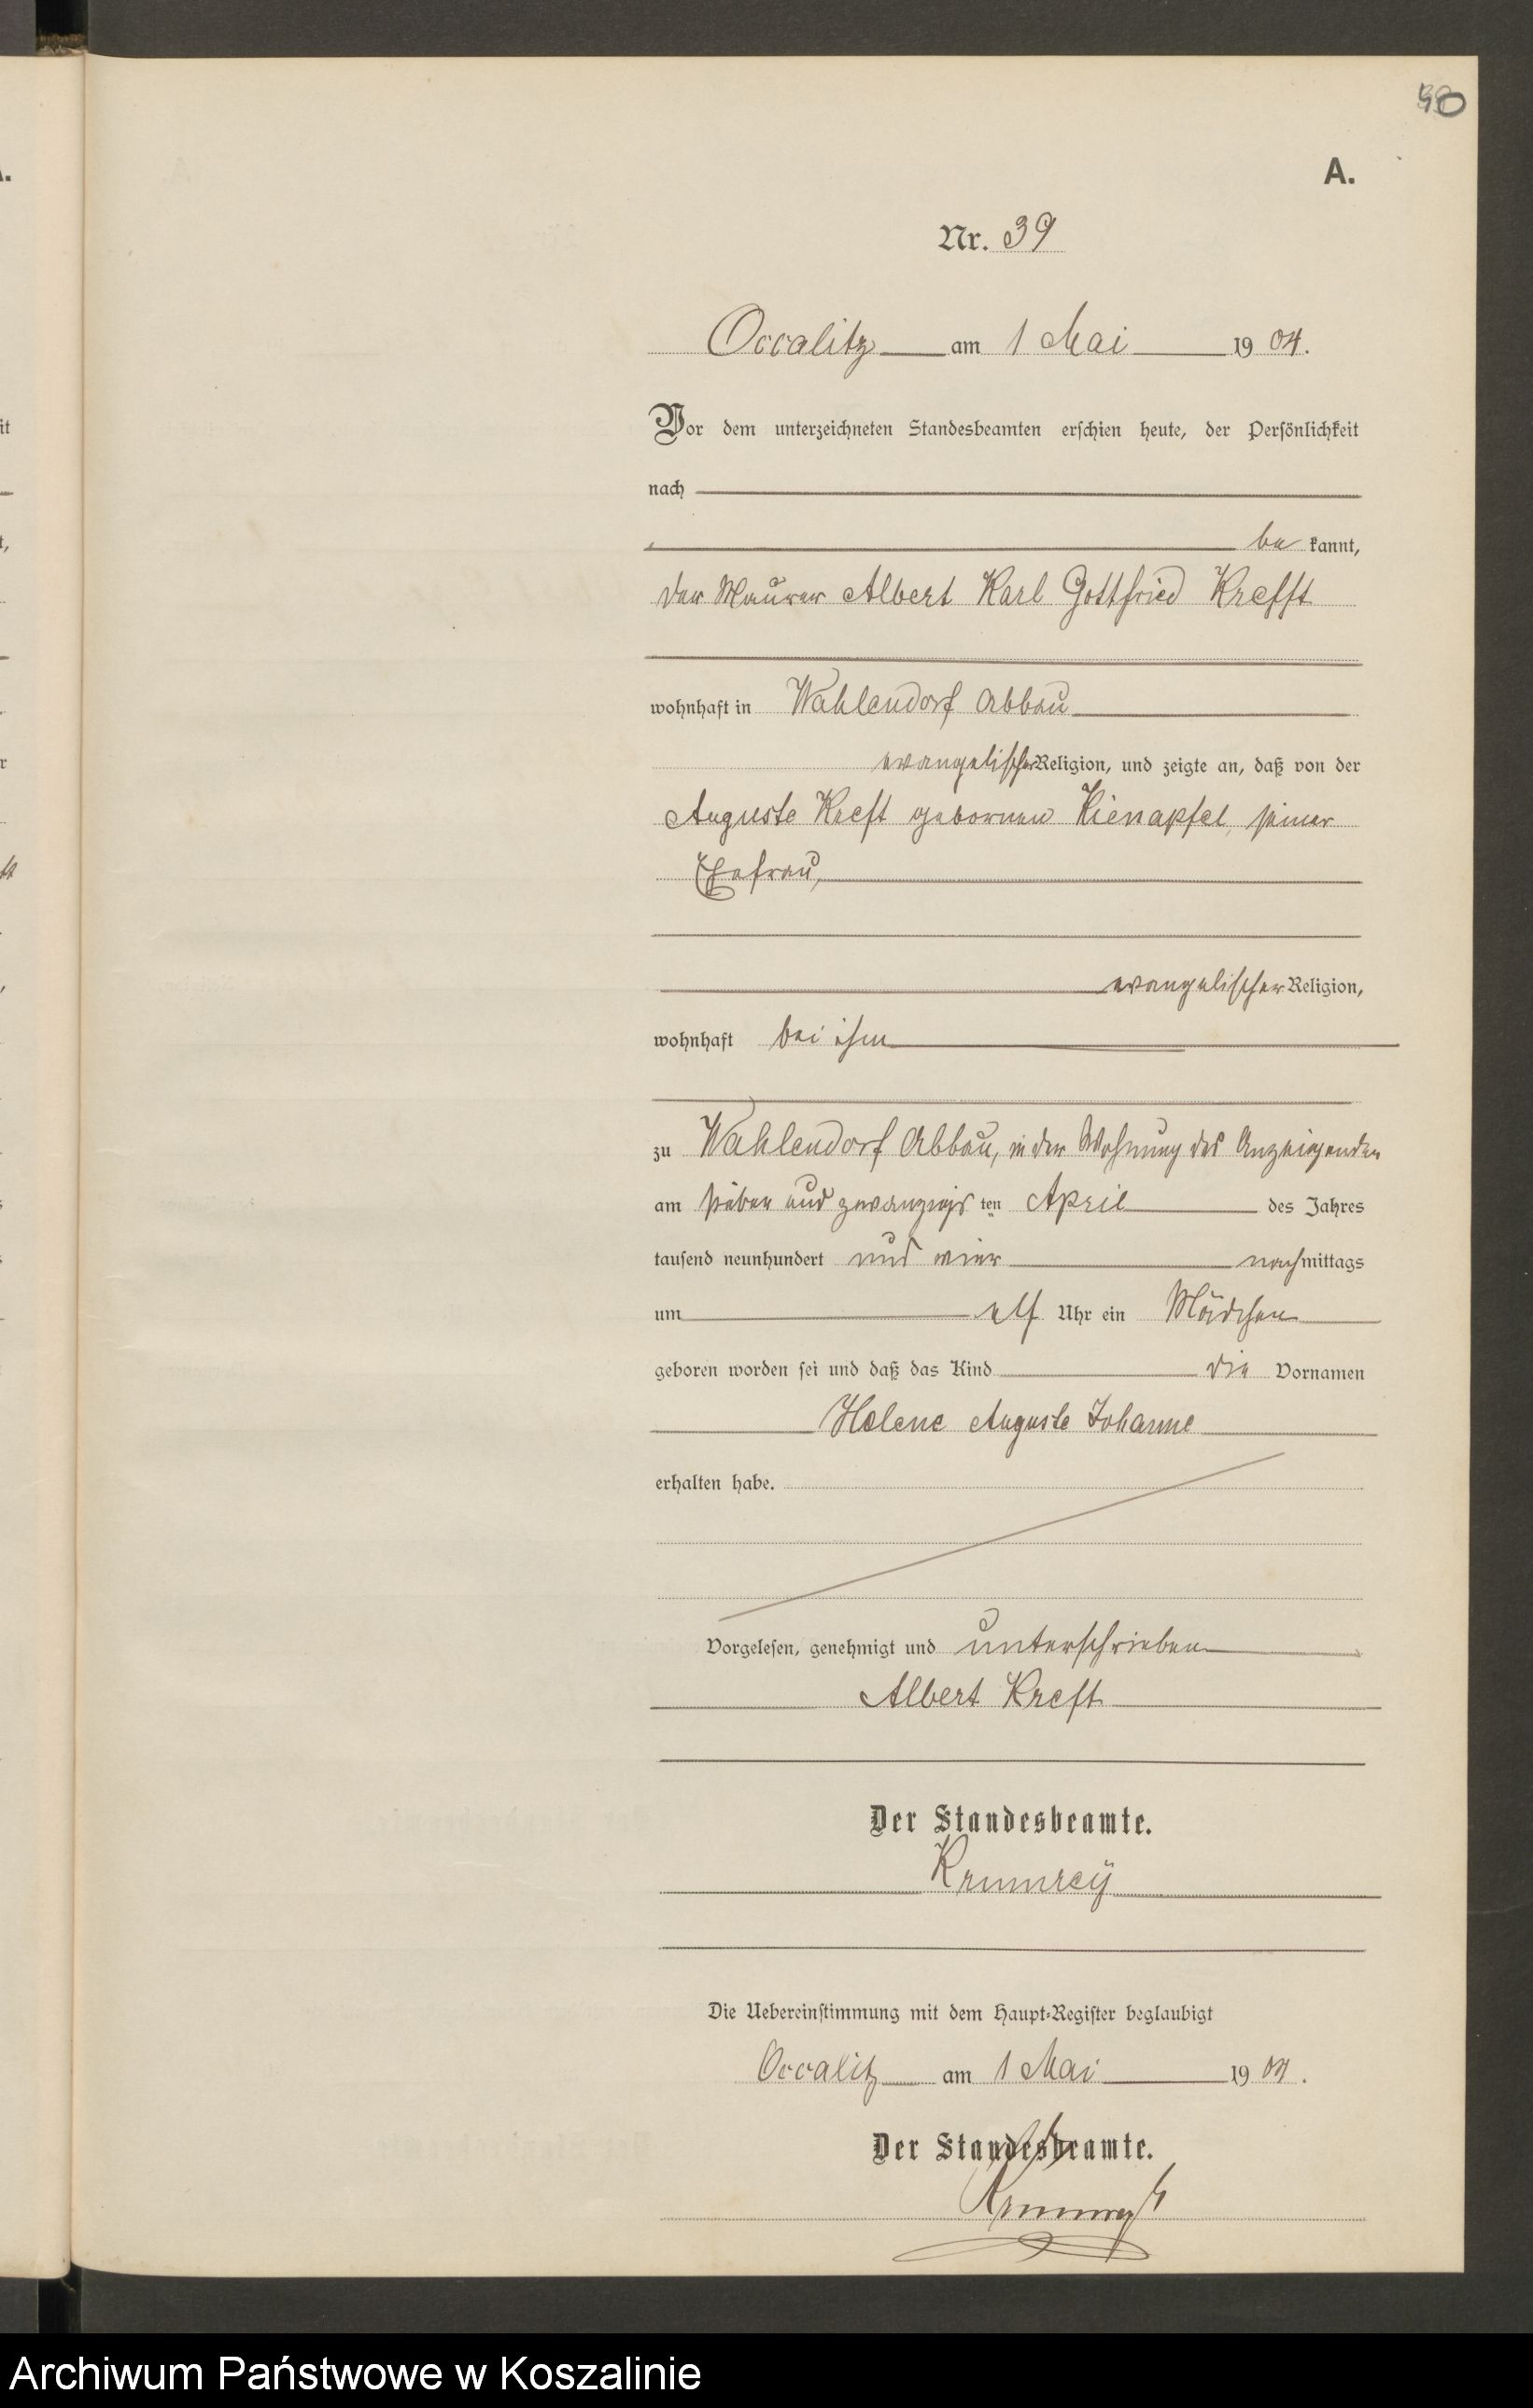 40
A.
Nr. 39
Occalitz am 1 Mai 1904.
Vor dem unterzeichneten Standesbeamten erschien heute, der Persönlichkeit
nach
be kannt,
der Maurer Albert Karl Gottfried Krefft
wohnhaft in Wahlendorf Abbau
evangelischer Religion, und zeigte an, daß von der
Auguste Kreft gebornen Kienapfel, seiner
Ehefrau,
evangelischer Religion,
wohnhaft bei ihm
zu Wahlendorf Abbau, in der Wohnung des Anzeigenden
am sieben und zwanzigs ten April des Jahres
tausend neunhundert und vier nachmittags
um elf Uhr ein Mädchen
geboren worden sei und daß das Kind die Vornamen
Helene Auguste Johanne
erhalten habe.
Vorgelesen, genehmigt und unterschrieben
Albert Kreft
Der Standesbeamte.
Krumrey
Die Uebereinstimmung mit dem Haupt-Register beglaubigt
Occalitz am 1 Mai 1904.
Der Standesbeamte.
Krumrey
Archiwum Państwowe w Koszalinie